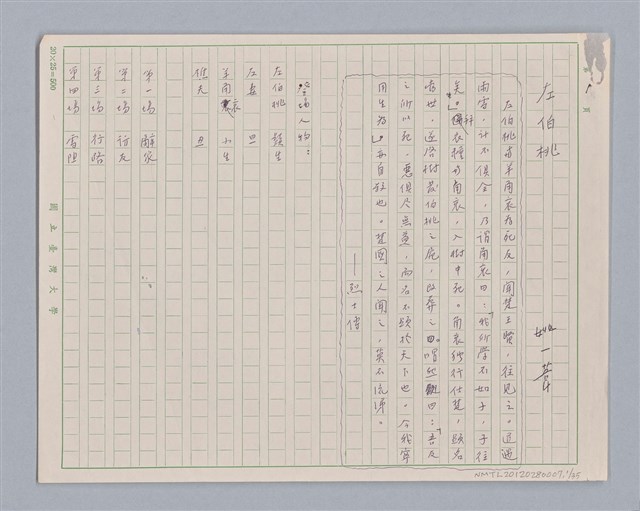 第 1 頁
左伯桃
姚一葦
左伯桃與羊角哀為死友，聞楚王賢，往見之。道遇
雨雪，計不俱全，乃謂角哀曰：「我所學不如子，子往
矣。」併衣糧與角哀，入樹中死。角哀獨行仕楚，顯名
當世，遂啓樹發伯桃之屍，改葬之。喟然曰：「吾友
之所以死，惡俱尽無益，而名不顯於天下也。今我寧
用生為」。亦自殺也。楚國之人聞之，莫不流涕。
——烈士傳
登場人物：
左伯桃 鬚生
左妻 旦
羊角哀 小生
樵夫 丑
第一場 辭家
第二場 訪友
第三場 行路
第四場 雪阻
20×25=500
國立臺灣大學
NMTL20120280007, 1/35